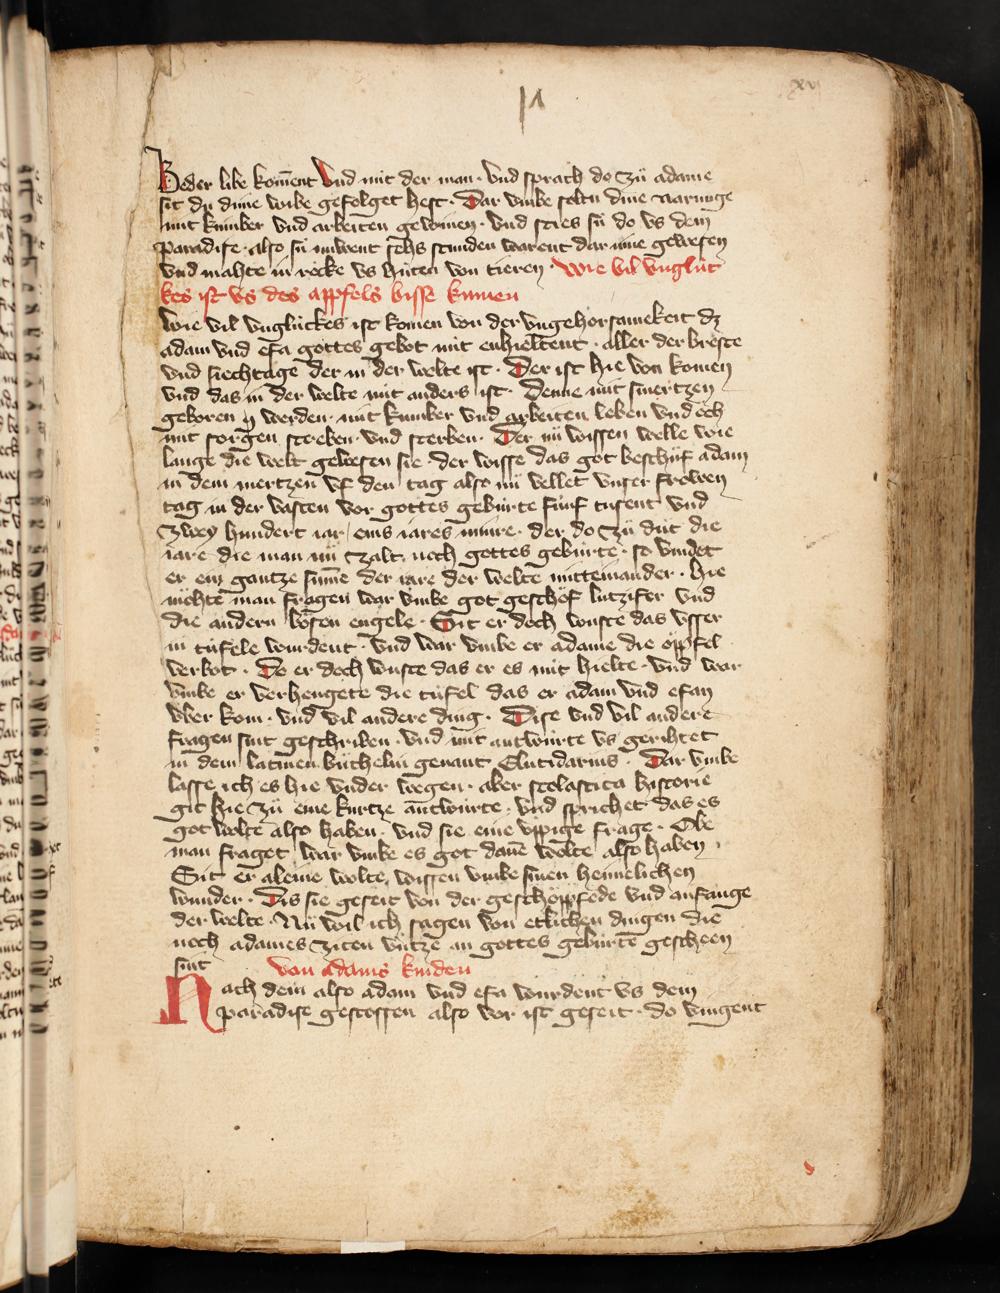 xv
Beder libe koment Vnd mit der man · vnd sprach do zü adame
sit du dime wibe gefolget hest · Dar vmbe soltu dine narunge
mit kumber vnd arbeiten gewinen · vnd sties sü do vs dem
paradise · also sü nuwent sehs stunden warent dar inne gewesen
vnd mahte in röcke vs hüten von tieren · Wie vil vnglüc
kes ist vs des appfels bisse kumen
Wie vil vnglückes ist komen von der vngehorsamekeit dz
adam vnd efa gottes gebot nüt enhieltent · aller der breste
vnd siechtage der in der welte ist · Der ist hie von komen
vnd das in der welte nüt anders ist · Denne mit smertzen
geboren werden · mit kumber vnd arbeiten leben vnd och
mit sorgen streben · vnd sterben · Der nü wissen welle wie
lange die welt gewesen sie · der wisse das got beschüf adam
in dem mertzen vf den tag also nü vellet vnser frowen
tag in der vasten vor gottes gebürte fünf tusent vnd
zwey hundert iar / eins iares minre · der do zü düt die
iare die man nü zalt noch gottes gebürte · so vindet
er ein gantze sume der iare der welte mitteinander · hie
möhte man fragen war vmbe got geschöf lutzifer vnd
die andern bösen engele · Sit er doch wuste das vsser
in tüfele wurdent · vnd war vmbe er adame die öppfel
verbot · Do er doch wuste das er es nüt hielte · vnd war
vmbe er verhengete die tüfel das er adam vnd efan
vber kom · vnd vil andere ding · Dise vnd vil andere
fragen sint geschriben · vnd mit antwürte vs gerihtet
in dem latinen büchelin genant Elucidarius · Dar vmbe
lasse ich es hie vnder wegen · aber scolastica historie
git hie zü eine kurtze antwürte · vnd sprichet das es
got wolte also haben · vnd sie eine üppige frage · Obe
man fraget war vmbe es got dane wolte also haben ·
Sit er aleine wolte wissen vmbe sinen heimelichen
wunder · Dis sie geseit von der geschöppfede vnd anfange
der welte · Nü wil ich sagen von etlichen dingen die
noch adames ziten vntze an gottes gebürte gescheen
sint von adams kinden
Nach dem also adam vnd efa wurdent vs dem
paradise gestossen also vor ist geseit · do vingent